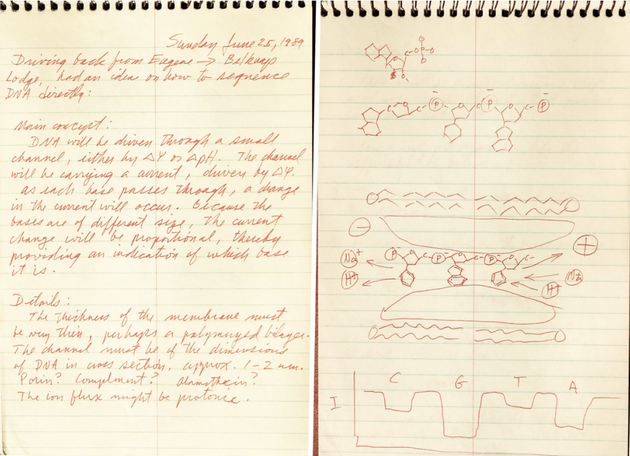 Sunday June 25, 1989
Driving back from Eugene → Belknap
Lodge, had an idea on how to sequence
DNA directly:
Main concept:
DNA will be driven through a small
channel, either by ΔΨ or ΔpH. The channel
will be carrying a current, driven by ΔΨ.
as each base passes through, a change
in the current will occur. Because the
bases are of different size, the current
change will be proportional, thereby
providing an indication of which base
it is.
Details:
The thickness of the membrane must
be very thin, perhaps a polymerized bilayer.
The channel must be of the dimensions
of DNA in cross section, approx. 1-2 nm.
Porin? Complement? Alamethicin?
The ion flux might be protonic.
P
P P P
− +
Na+ P P P
H+ H+
C G T A
I